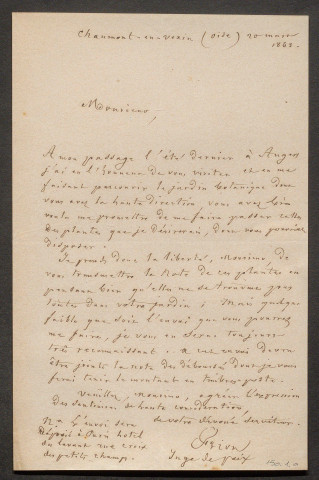 Chaumont-en-Vexin (Oise) 20 mars
1868.
Monsieur,
A mon passage l'été dernier à Angers
j'ai eu l'honneur de vous visiter et en me
faisant parcourir le jardin botanique dont
vous avez la haute direction, vous avez bien
voulu me promettre de me faire passer celles
des plantes que je désirerais, dont vous pourriez
disposer.
Je prends donc la liberté, Monsieur, de
vous transmettre la note de ces plantes en
pensant bien qu'elles ne se trouvent pas
toutes dans votre jardin; Mais quelque
faible que soit l'envoi que vous pourrez
me faire, je vous en serai toujours
très reconnaissant. A cet envoi devra
être jointe la note des déboursés dont je vous
ferai tenir le montant en timbres-poste.
Veuillez, Monsieur, agréer l'expression
des sentiments de haute considération,
de votre dévoué serviteur.
Juge de paix
Na L'envoi sera
déposé à Paris hotel
du levant rue croix
des petits champs.